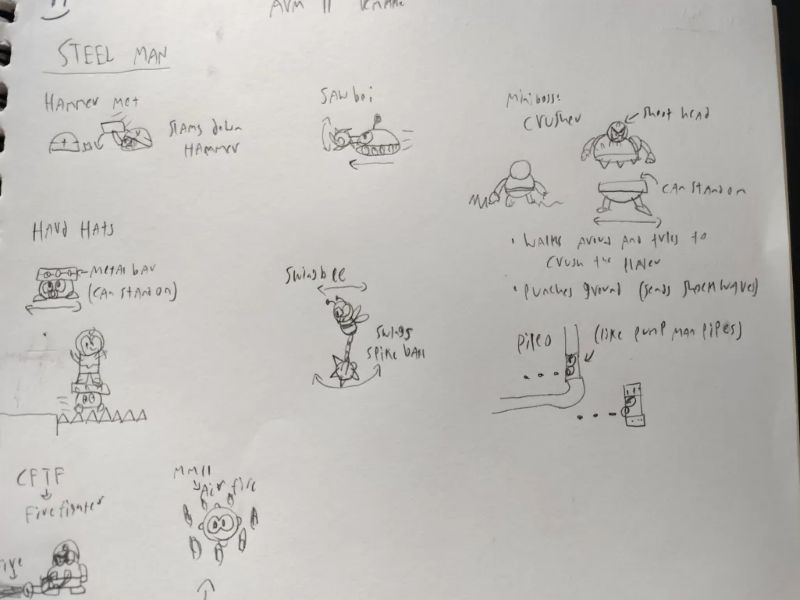 STEEL MAN
HAMMER MET
SLAMS DOWN
HAMMER
SAW boi
Miniboss:
CRUSHER
Shoot head
CAN STAND ON
• WALKS AROUND AND TRIES TO
CRUSH THE PLAYER
• PUNCHES GROUND (SENDS SHOCKWAVES)
HARD HATS
METAL BAR
(CAN STAND ON)
Swingbee
SWINGS
SPIKE BALL
PIPEO
(LIKE PUMP MAN PIPES)
CFTF
Firefighter
MM11
Air fire